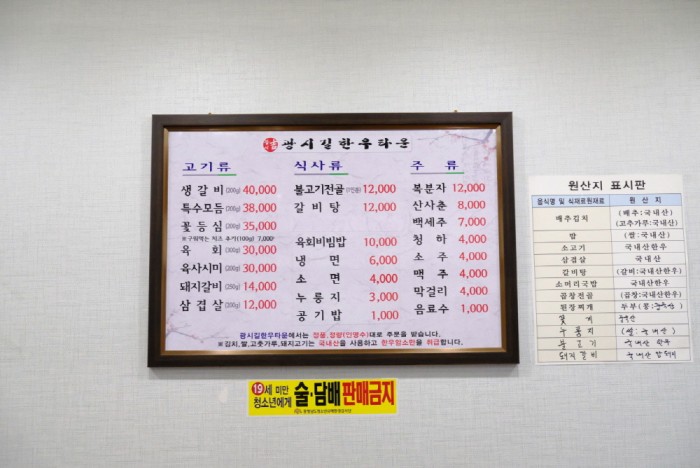 광시길한우타운
고기류
생갈비 (200g) 40,000
특수모듬 (200g) 38,000
꽃등심 (200g) 35,000
※구워먹는 치즈 추가(100g) 7,000
육회 (300g) 30,000
육사시미 (300g) 30,000
돼지갈비 (250g) 14,000
삼겹살 (200g) 12,000
식사류
불고기전골 (1인분) 12,000
갈비탕 12,000
육회비빔밥 10,000
냉면 6,000
소면 4,000
누룽지 3,000
공기밥 1,000
주류
복분자 12,000
산사춘 8,000
백세주 7,000
청하 4,000
소주 4,000
맥주 4,000
막걸리 4,000
음료수 1,000
광시길한우타운에서는 정품,정량(인명수)대로 주문을 받습니다.
※김치,쌀,고춧가루,돼지고기는 국내산을 사용하고 한우암소만을 취급합니다.
19세 미만
청소년에게
술·담배 판매금지
원산지 표시판
음식명 및 식재료원재료 원산지
배추김치 (배추:국내산)
(고추가루:국내산)
밥 (쌀:국내산)
소고기 국내산한우
삼겹살 국내산
갈비탕 (갈비:국내산한우)
소머리국밥 국내산한우
곱창전골 (곱창:국내산한우)
된장찌개 두부(콩:
꽃게
누룽지 (쌀:국내산)
불고기 국내산 한우
돼지갈비 국내산